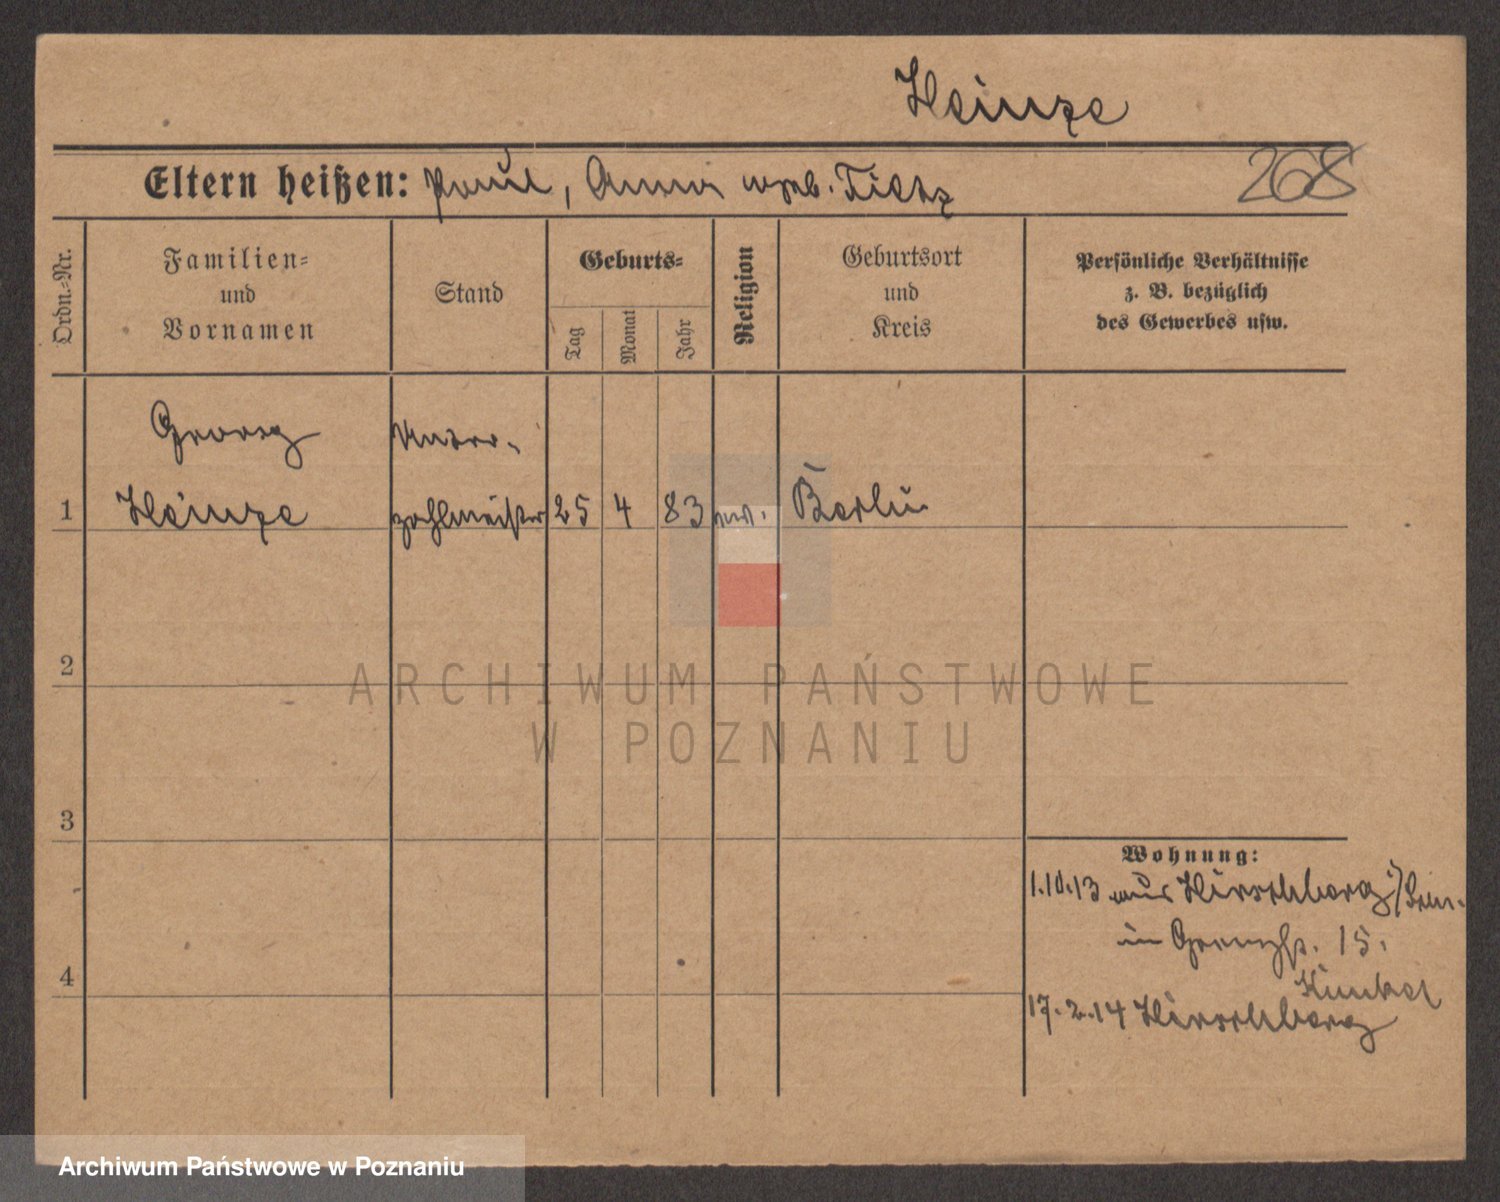 Heinze
Eltern heißen: Paul, Anna geb. Tietz
268
Ordn.-Nr.
Familien-
und
Vornamen
Stand
Geburts-
Tag
Monat
Jahr
Religion
Geburtsort
und
Kreis
Persönliche Verhältnisse
z. B. bezüglich
des Gewerbes usw.
Georg
Unter-
1 Heinze zahlmeister 25 4 83 ev. Berlin
2
3
4
Wohnung:
1.10.13 aus Hirschberg
in Grenzstr. 15.
Kunkel
17.2.14 Hirschberg
ARCHIWUM PAŃSTWOWE
W POZNANIU
Archiwum Państwowe w Poznaniu